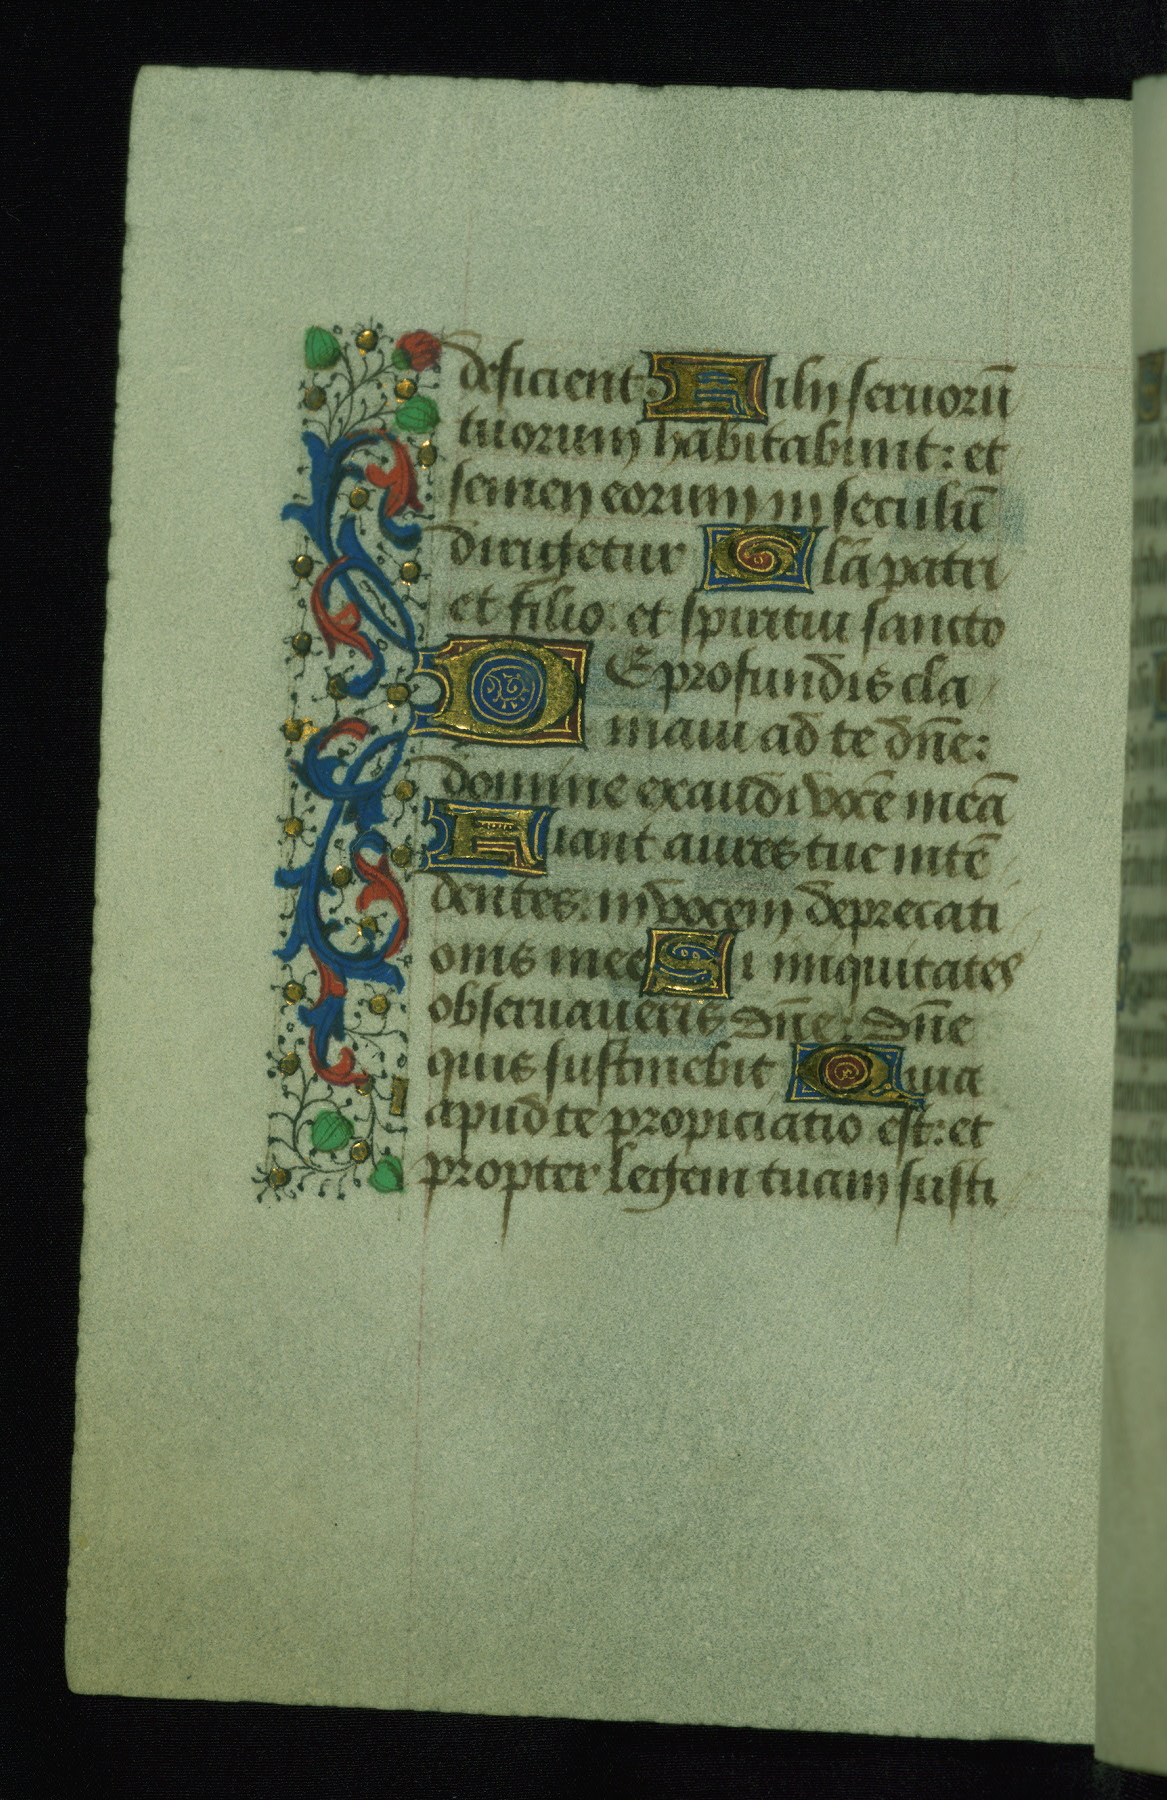 deficient: Filij seruorū
tuorum habitabunt: et
semen eorum in seculū
dirigetur Glā patri
et filio: et spiritui sancto
DE profundis cla
maui ad te dn̄e:
domine exaudi vocē meā
Fiant aures tue intē
dentes: in vocem deprecati
onis mee Si iniquitates
obseruaueris dn̄e: dn̄e
quis sustinebit Quia
apud te propiciatio est: et
propter legem tuam susti